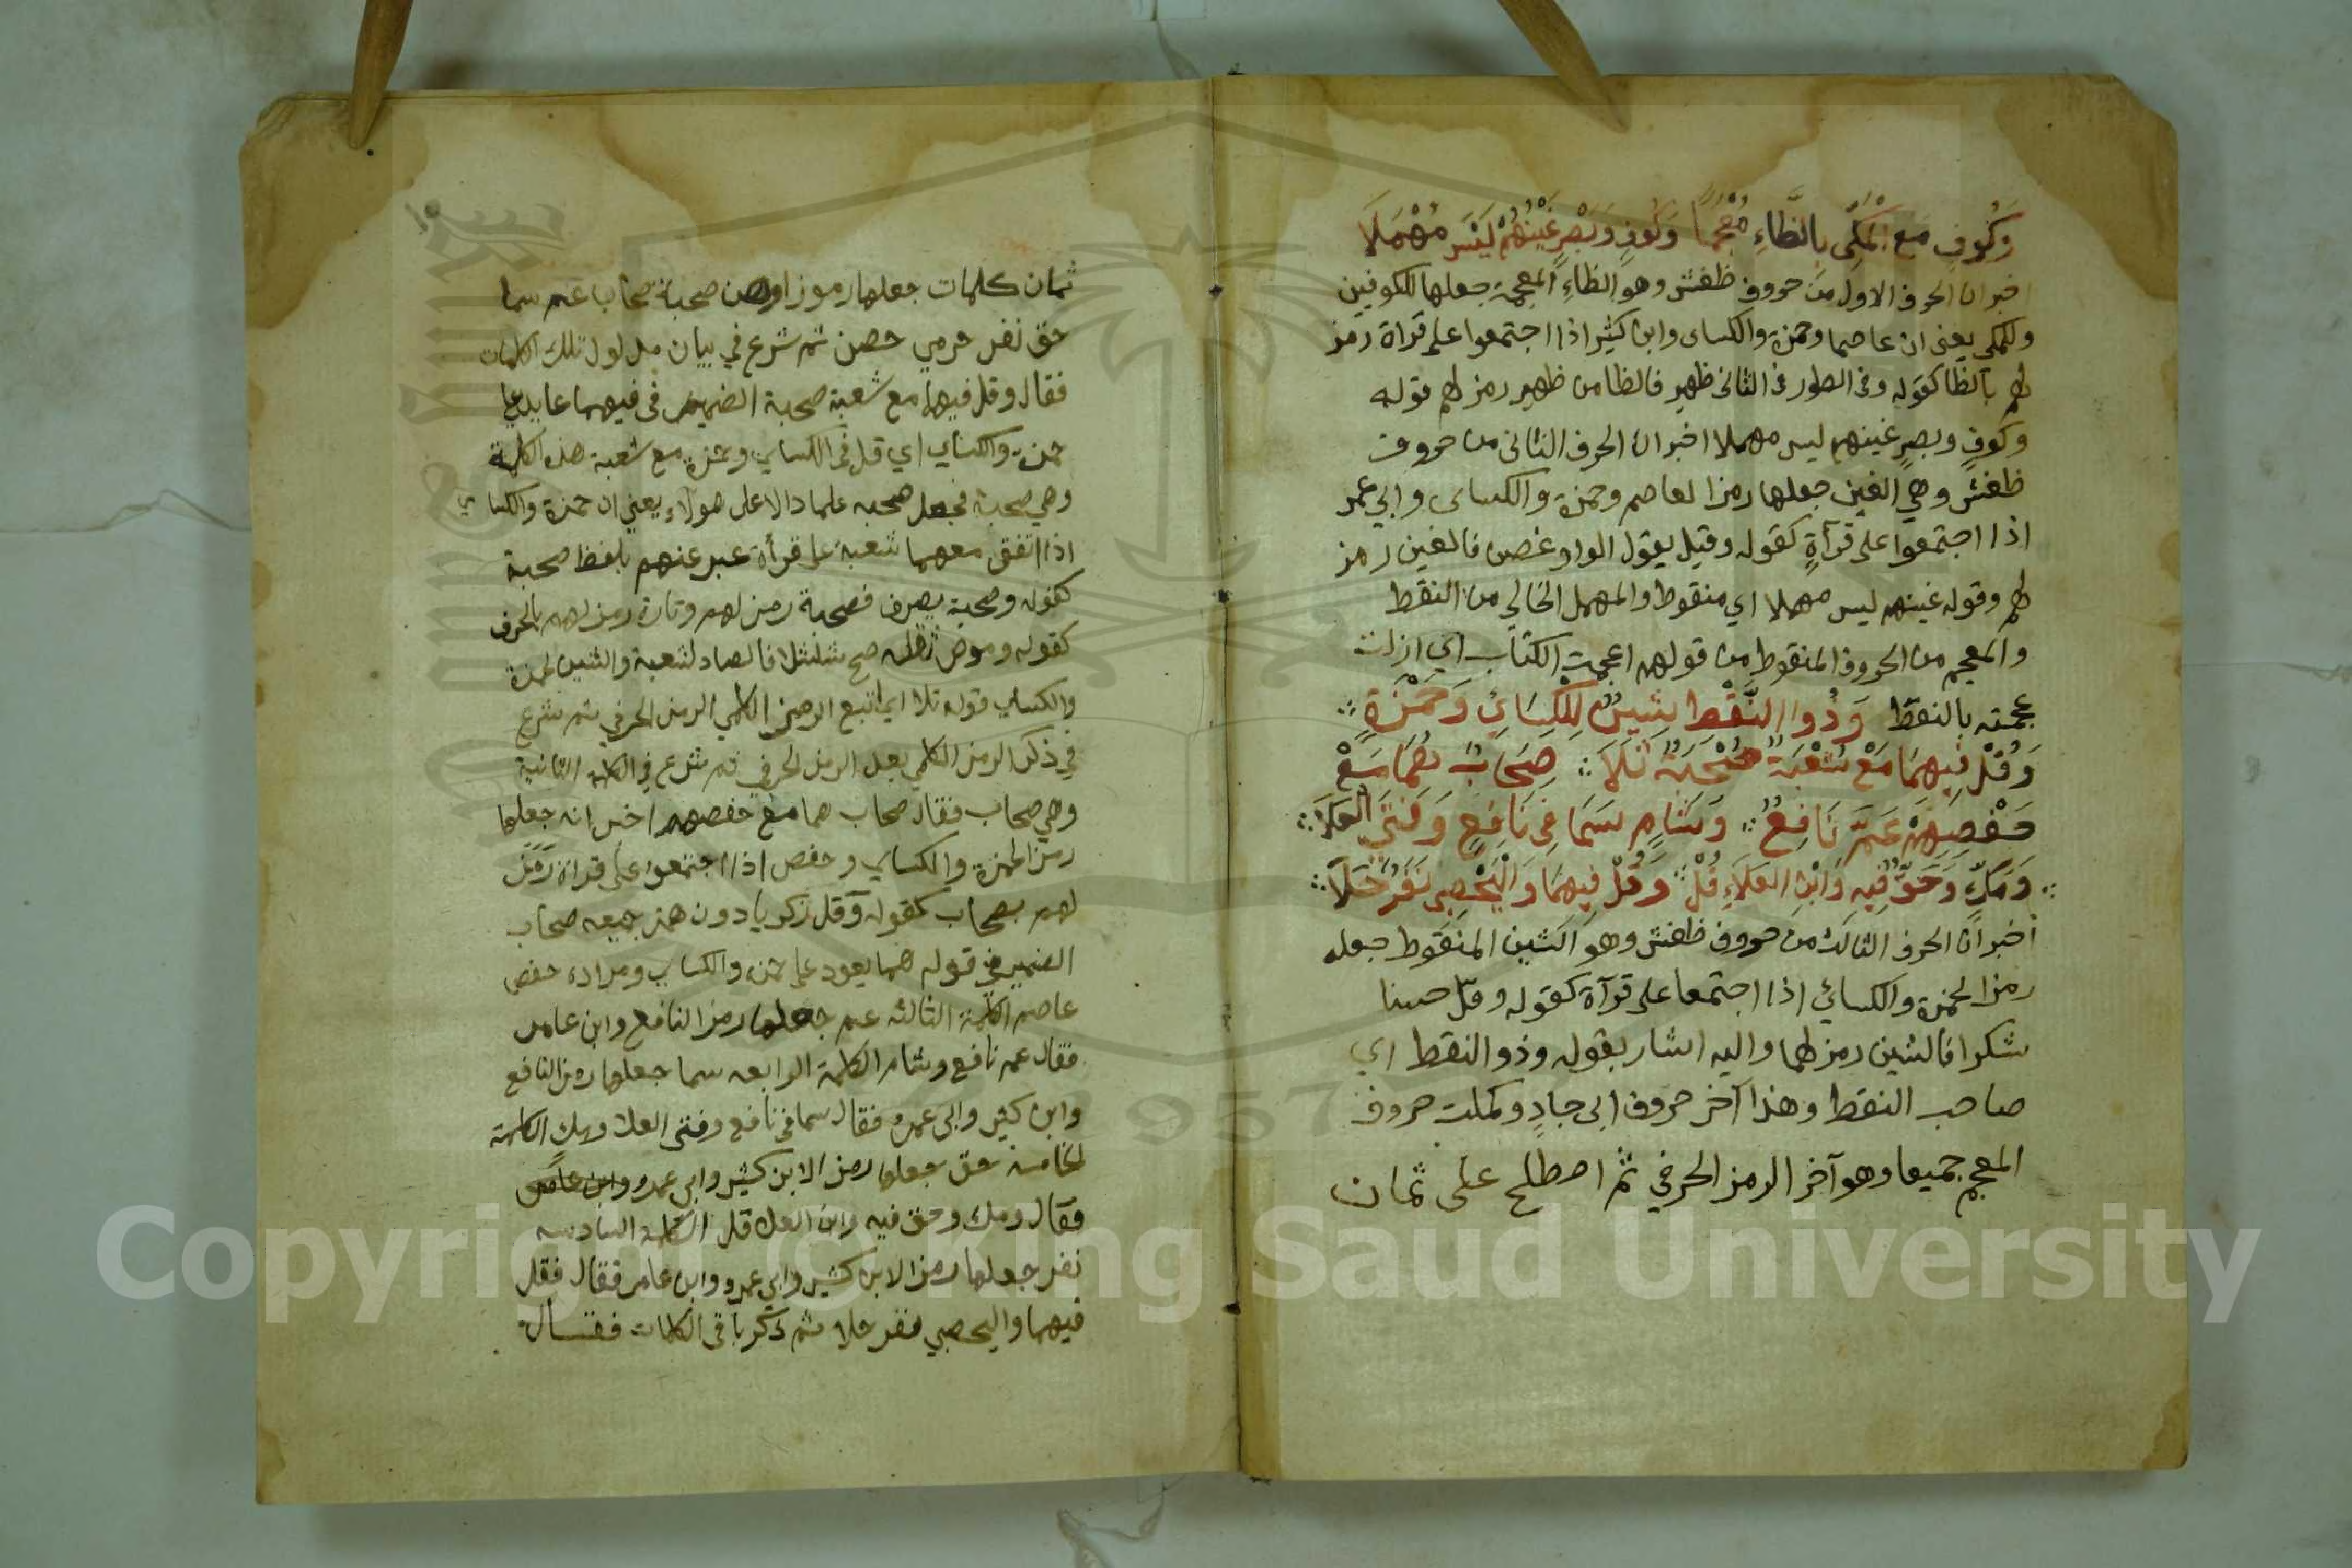 وَكُوفٍ مَعَ الْمَكِّي بِالظَّاءِ مُعْجَمًا وَكُوفٍ وَبَصْرٍ غَيْنُهُمْ لَيْسَ مُهْمَلَا
اخبر ان الحرف الاول من حروف ظغش وهو الظاءِ المعجمة جعلها للكوفيين
وللمكي يعني ان عاصما وحمزة والكساى وابن كثير اذا اجتمعوا على قراة رمز
لهم بالظا كقوله وفى الطور فى الثانى ظهير فالظا من ظهير رمز لهم قوله
وكوفٍ وبصرٍ غينهم ليس مهملا اخبر ان الحرف الثانى من حروف
ظغش وهي الغين جعلها رمزا لعاصم وحمزة والكساى وابي عمر
اذا اجتمعوا على قرآةٍ كقوله وقبل يقول الواو غصن فالغين رمز
لهم وقوله غينهم ليس مهملا اي منقوط والمهمل الخالي من النقط
والمعجم من الحروف المنقوط من قولهم اعجمت الكتاب اي ازلت
عجمته بالنقط وَذُو النَّقْطِ شِينٌ لِلْكِسَائِي وَحَمْزَةٍ
وَقُلْ فِيهِمَا مَعْ شُعْبَةٍ صُحْبَةٌ تَلَا صِحَابٌ هُمَا مَعْ
حَفْصِهِمْ عَمَّ نَافِعٌ وَشَامٍ سَمَا فِى نَافِعٍ وَفَتَى الْعَلَا
وَمَكٍّ وَحَقٌّ فِيهِ وَابْنِ الْعَلَاءِ قُلْ وَقُلْ فِيهِمَا وَالْيَحْصِبِي نَفَرٌ حَلَا
أخبر ان الحرف الثالث من حروف ظغش وهو الشين المنقوط جعله
رمزا لحمزة والكسائي اذا اجتمعا على قرآة كقوله وقل حسنا
شكرا فالشين رمز لهما واليه اشار بقوله وذو النقط اي
صاحب النقط وهذا آخر حروف ابى جادٍ وكملت حروف
المعجم جميعا وهو آخر الرمز الحرفي ثم اصطلح على ثمان
ثمان كلمات جعلها رموزا وهن صحبة صحاب عم سما
حق نفر حرمي حصن ثم شرع في بيان مدلول تلك الكلمات
فقال وقل فيهما مع شعبة صحبة الضمير فى فيهما عايد على
حمزة والكساي اي قل فى الكساي وحمزة مع شعبة هذه الكلمة
وهي صحبة فجعل صحبه علما دالا على هولاء يعني ان حمزة والكساي
اذا اتفق معهما شعبة على قرأة عبر عنهم بلفظ صحبة
كقوله وصحبة يصرف فصحبة رمز لهم وتارة رمز لهم بالحرف
كقوله وموص ثقله صح شلشلا فالصاد لشعبة والشين لحمزة
والكساي قوله تلا اي اتبع الرمز الكلمي الرمز الحرفي ثم شرع
في ذكر الرمز الكلمي بعد الرمز الحرفي ثم شرع في الكلمة الثانية
وهي صحاب فقال صحاب هما مع حفصهم اخبر انه جعلها
رمزا لحمزة والكساي وحفص اذا اجتمعوا على قراة رمز
لهم بصحاب كقوله وقل زكريا دون همز جميعه صحاب
الضمير في قوله هما يعود على حمزه والكساي ومراده حفص
عاصم الكلمة الثالثه عم جعلها رمزا لنافع وابن عامر
فقال عم نافع وشام الكلمة الرابعه سما جعلها رمزا لنافع
وابن كثير وابى عمرو فقال سما فى نافع وفتى العلا ومكٍ الكلمة
الخامسة حق جعلها رمزا لابن كثير وابى عمرو وابن عامر
فقال ومك وحق فيه وابن العلا قل الكلمة السادسه
نفر جعلها رمزا لابن كثير وابي عمرو وابن عامر فقال فقل
فيهما واليحصبي نفر حلا ثم ذكر باقى الكلمات فقال
Copyright © King Saud University
1957